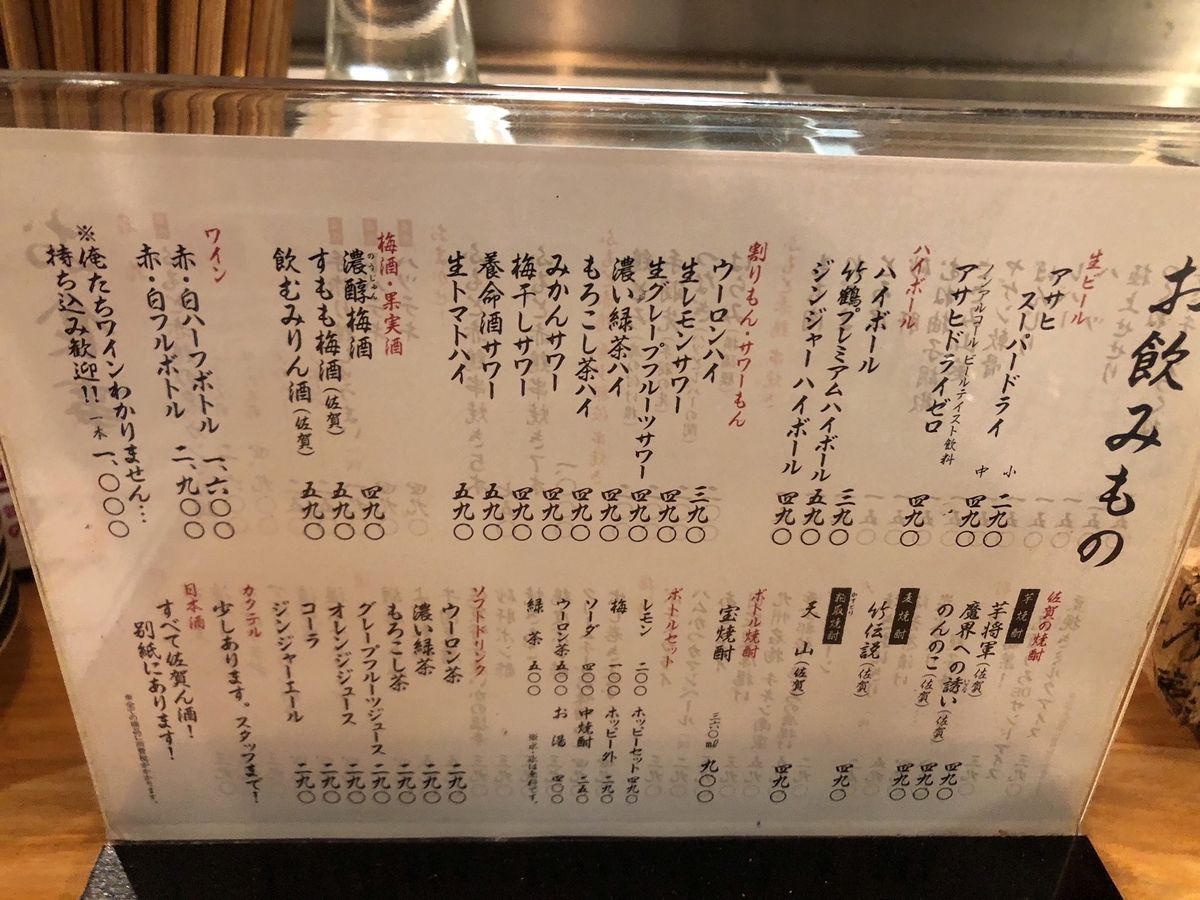 お飲みもの
生ビール
アサヒ
スーパードライ 小 二九〇
中 四九〇
ノンアルコール ビールテイスト飲料
アサヒドライゼロ 四九〇
ハイボール
ハイボール 三九〇
竹鶴プレミアムハイボール 五九〇
ジンジャーハイボール 四九〇
割りもん・サワーもん
ウーロンハイ 三九〇
生レモンサワー 四九〇
生グレープフルーツサワー 四九〇
濃い緑茶ハイ 四九〇
もろこし茶ハイ 四九〇
みかんサワー 四九〇
梅干しサワー 四九〇
養命酒サワー 五九〇
生トマトハイ 五九〇
梅酒・果実酒
濃醇梅酒 四九〇
のうじゅん
すもも梅酒(佐賀) 五九〇
飲むみりん酒(佐賀) 五九〇
ワイン
赤・白ハーフボトル 一、六〇〇
赤・白フルボトル 二、九〇〇
※俺たちワインわかりません…
持ち込み歓迎!! 一本 一、〇〇〇
佐賀の焼酎
芋焼酎
芋将軍(佐賀) 四九〇
魔界への誘い(佐賀) 四九〇
のんのこ(佐賀) 四九〇
麦焼酎
竹伝説(佐賀) 四九〇
粕取焼酎
天山(佐賀) 四九〇
ボトル焼酎
宝焼酎 三六〇ml 九〇〇
ボトルセット
レモン 二〇〇 ホッピーセット 四九〇
梅 一〇〇 ホッピー外 二九〇
ソーダ 四〇〇 中焼酎 二五〇
ウーロン茶 五〇〇 お湯 四〇〇
緑茶 五〇〇
ソフトドリンク
ウーロン茶 二九〇
濃い緑茶 二九〇
もろこし茶 二九〇
グレープフルーツジュース 二九〇
オレンジジュース 二九〇
コーラ 二九〇
ジンジャーエール 二九〇
カクテル
少しあります。スタッフまで!
日本酒
すべて佐賀ん酒!
別紙にあります!
※全ての商品に消費税がかかります。